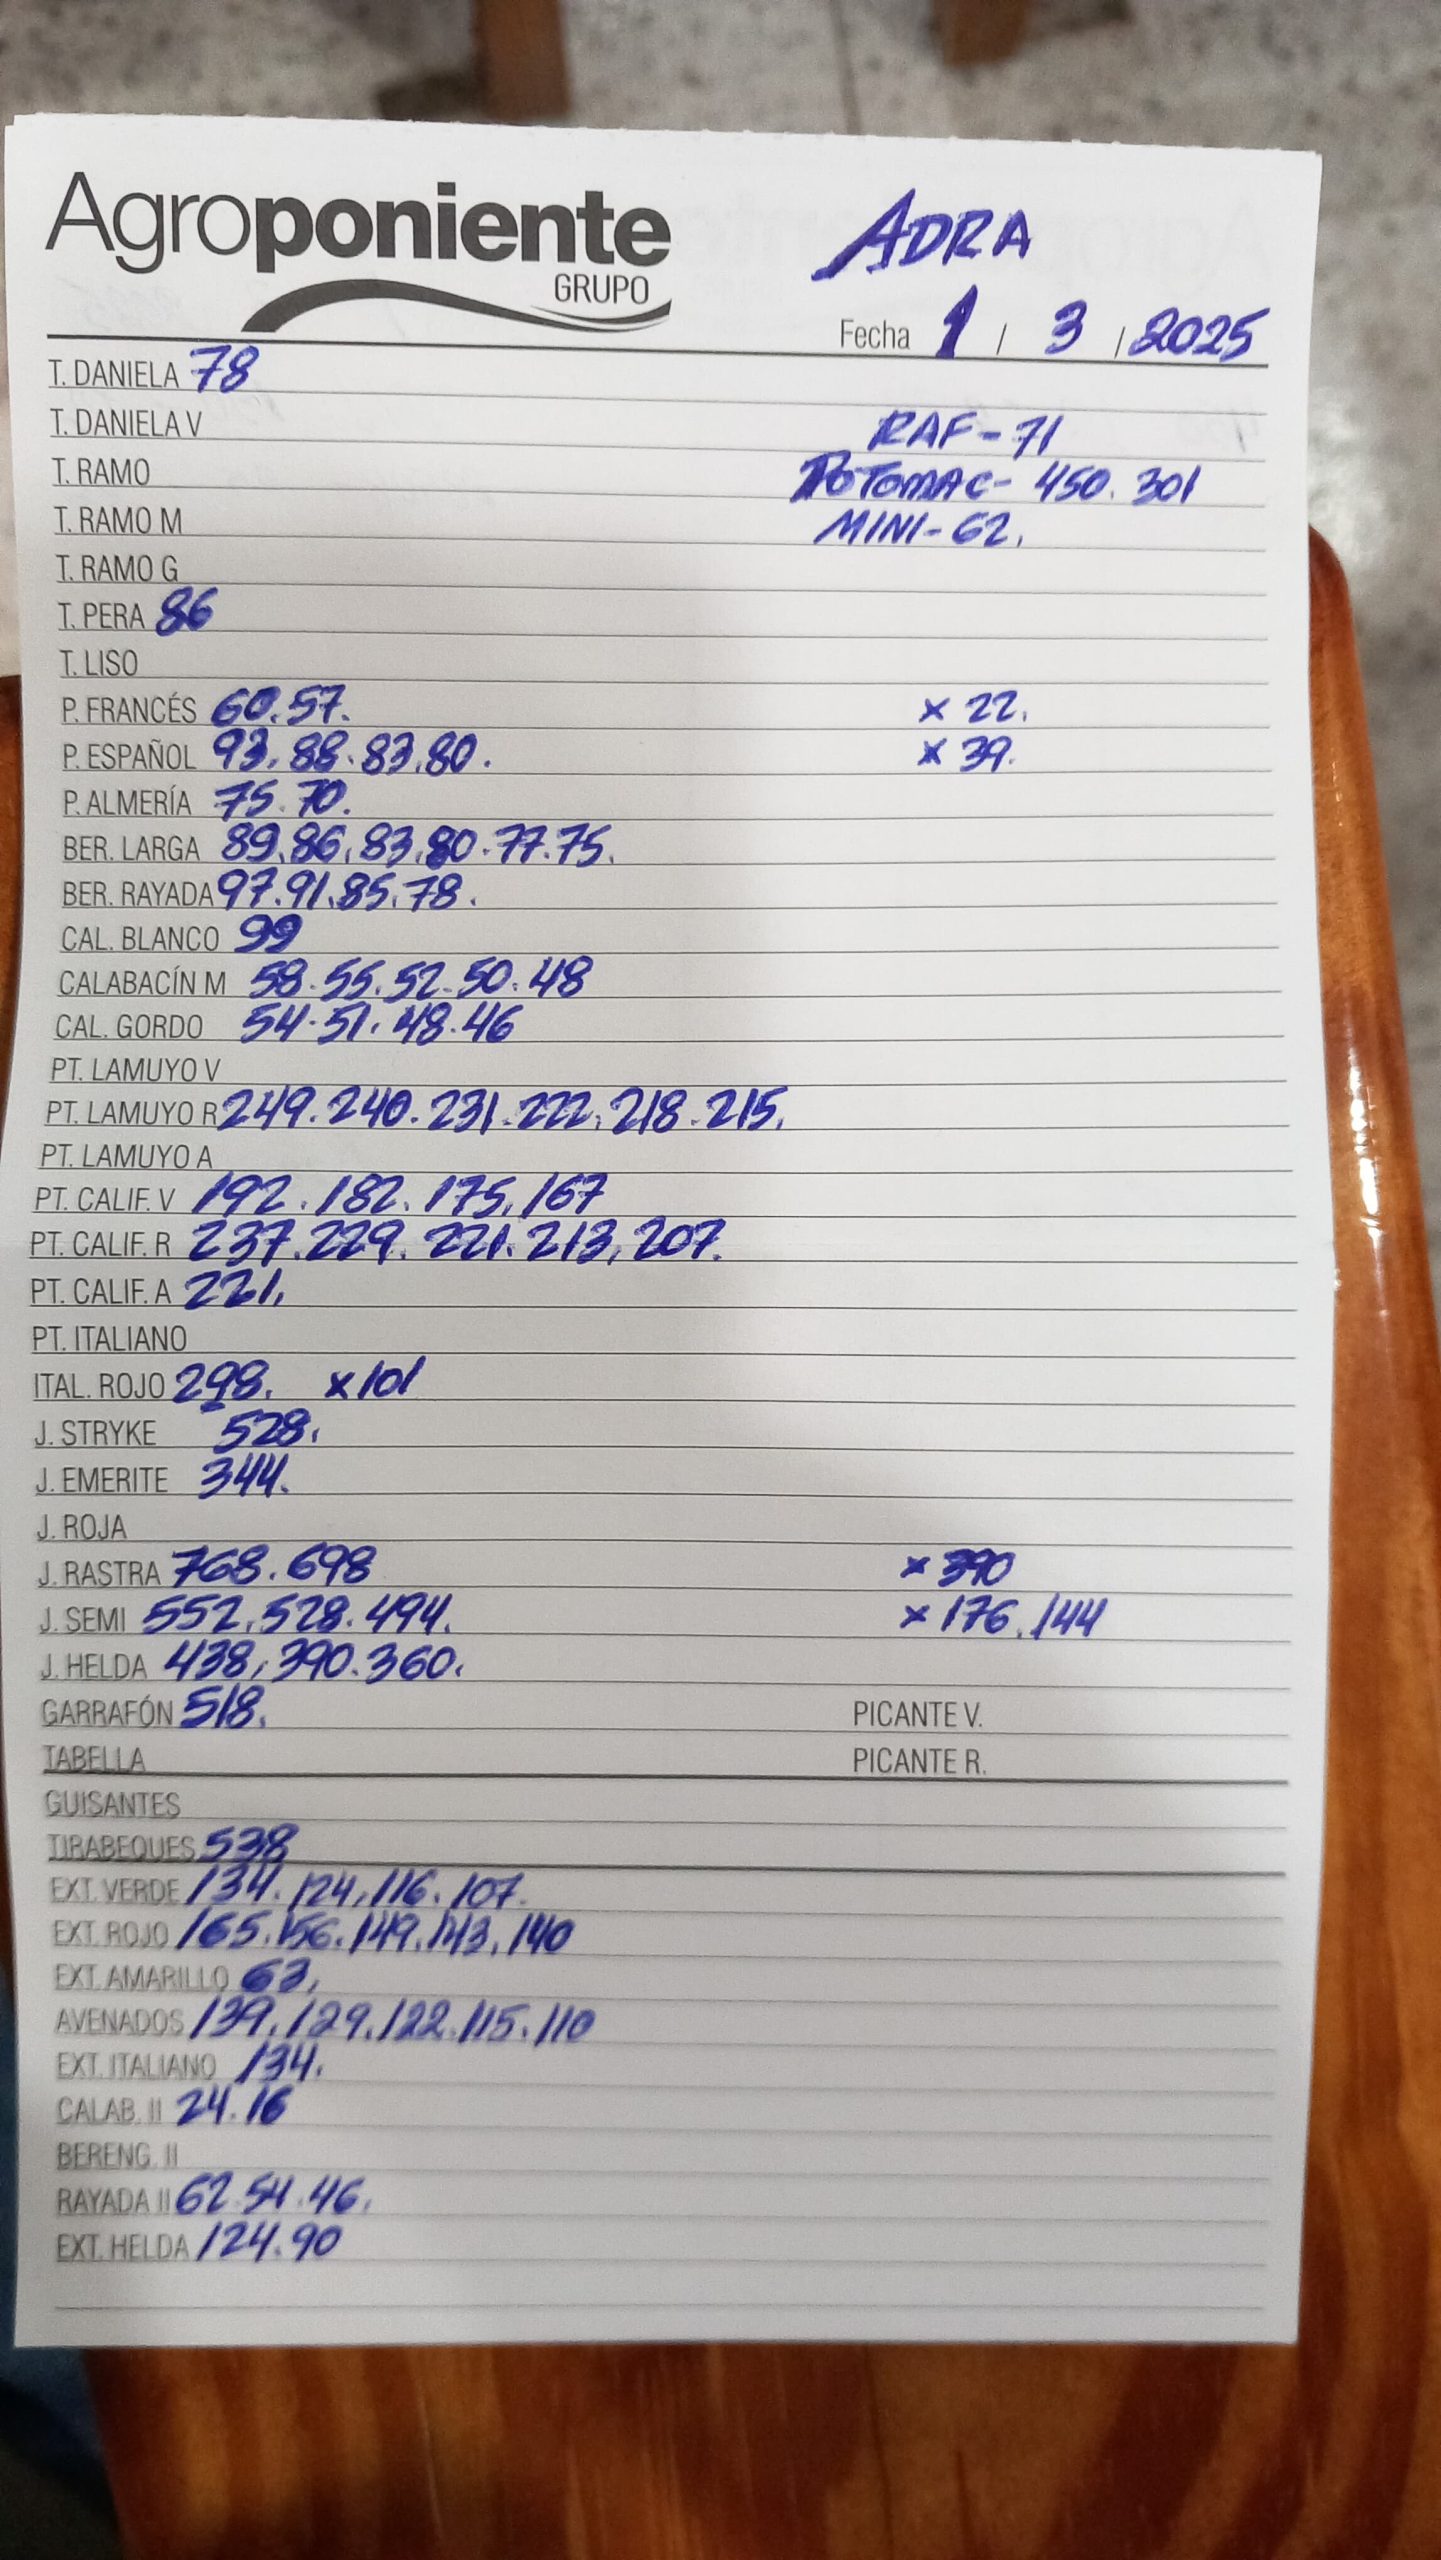 Agroponiente
GRUPO
ADRA
Fecha 1 / 3 / 2025
T. DANIELA 78
T. DANIELA V RAF - 71
T. RAMO POTOMAC - 450. 301
T. RAMO M MINI - 62.
T. RAMO G
T. PERA 86
T. LISO
P. FRANCÉS 60. 57. x 22.
P. ESPAÑOL 93. 88. 83. 80. x 39.
P. ALMERÍA 75. 70.
BER. LARGA 89. 86. 83. 80. 77. 75.
BER. RAYADA 97. 91. 85. 78.
CAL. BLANCO 99
CALABACÍN M 58. 55. 52. 50. 48
CAL. GORDO 54. 51. 48. 46
PT. LAMUYO V
PT. LAMUYO R 249. 240. 231. 222. 218. 215.
PT. LAMUYO A
PT. CALIF. V 192. 182. 175. 167
PT. CALIF. R 237. 229. 221. 213. 207.
PT. CALIF. A 221.
PT. ITALIANO
ITAL. ROJO 298. x 101
J. STRYKE 528.
J. EMERITE 344.
J. ROJA
J. RASTRA 768. 698 x 390
J. SEMI 552. 528. 494. x 176. 144
J. HELDA 438. 390. 360.
GARRAFÓN 518. PICANTE V.
TABELLA PICANTE R.
GUISANTES
TIRABEQUES 538
EXT. VERDE 134. 124. 116. 107.
EXT. ROJO 165. 156. 149. 143. 140
EXT. AMARILLO 63.
AVENADOS 139. 129. 122. 115. 110
EXT. ITALIANO 134.
CALAB. II 24. 16
BERENG. II
RAYADA II 62. 54. 46.
EXT. HELDA 124. 90